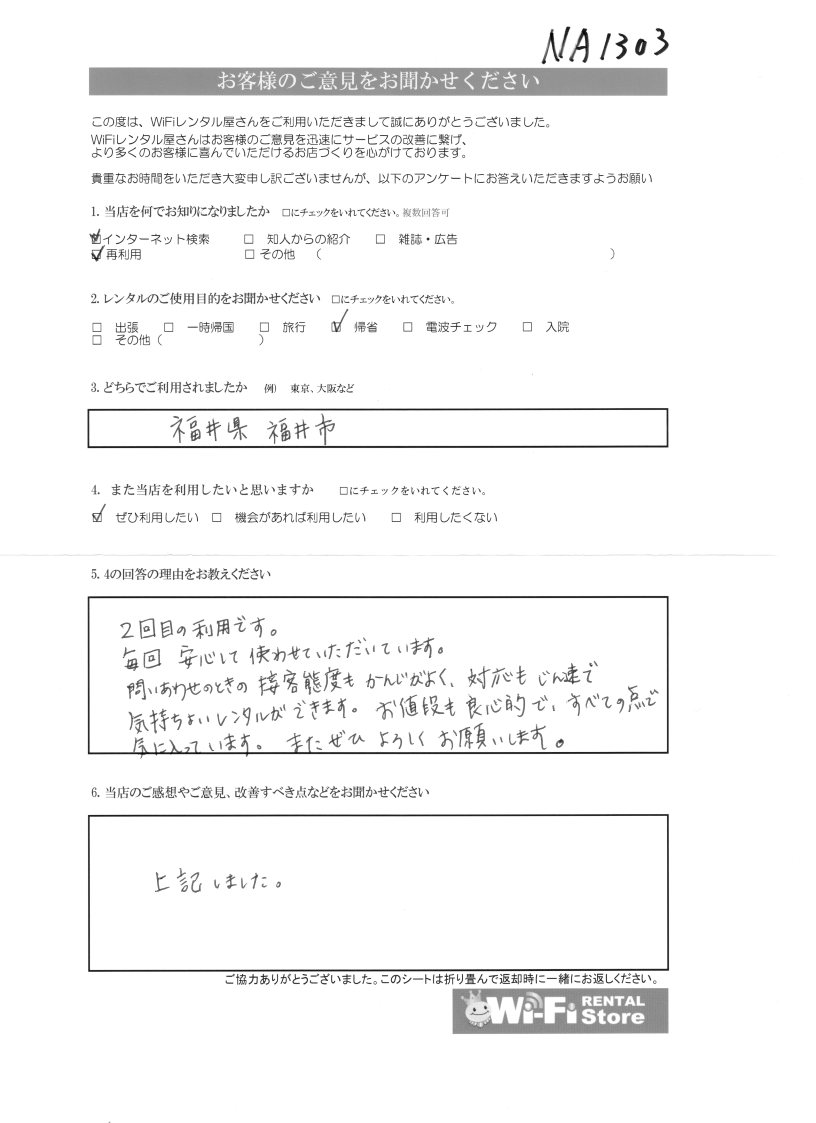 NA1303
お客様のご意見をお聞かせください
この度は、WiFiレンタル屋さんをご利用いただきまして誠にありがとうございました。
WiFiレンタル屋さんはお客様のご意見を迅速にサービスの改善に繋げ、
より多くのお客様に喜んでいただけるお店づくりを心がけております。
貴重なお時間をいただき大変申し訳ございませんが、以下のアンケートにお答えいただきますようお願い
1. 当店を何でお知りになりましたか □にチェックをいれてください。複数回答可
☑インターネット検索 □ 知人からの紹介 □ 雑誌・広告
☑再利用 □その他 （ ）
2. レンタルのご使用目的をお聞かせください □にチェックをいれてください。
□ 出張 □ 一時帰国 □ 旅行 ☑ 帰省 □ 電波チェック □ 入院
□ その他（ ）
3. どちらでご利用されましたか 例） 東京、大阪など
福井県 福井市
4. また当店を利用したいと思いますか □にチェックをいれてください。
☑ ぜひ利用したい □ 機会があれば利用したい □ 利用したくない
5. 4の回答の理由をお教えください
2回目の利用です。
毎回 安心して使わせていただいています。
問いあわせのときの接客態度もかんじがよく、対応もじん速で
気持ちよいレンタルができます。お値段も良心的で、すべての点で
気に入っています。またぜひよろしくお願いします。
6. 当店のご感想やご意見、改善すべき点などをお聞かせください
上記しました。
ご協力ありがとうございました。このシートは折り畳んで返却時に一緒にお返しください。
Wi-Fi RENTAL Store